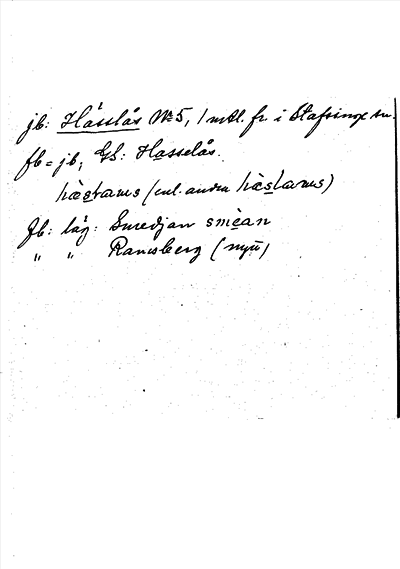 jb: Hässlås No 5, 1 mtl. fr. i Stafsinge sn.
fb = jb; GS: Hasselås.
hæstaras (enl. andra hæslaras)
Jb: läg: Smedjan smèan
" " Ramsberg (nytt)